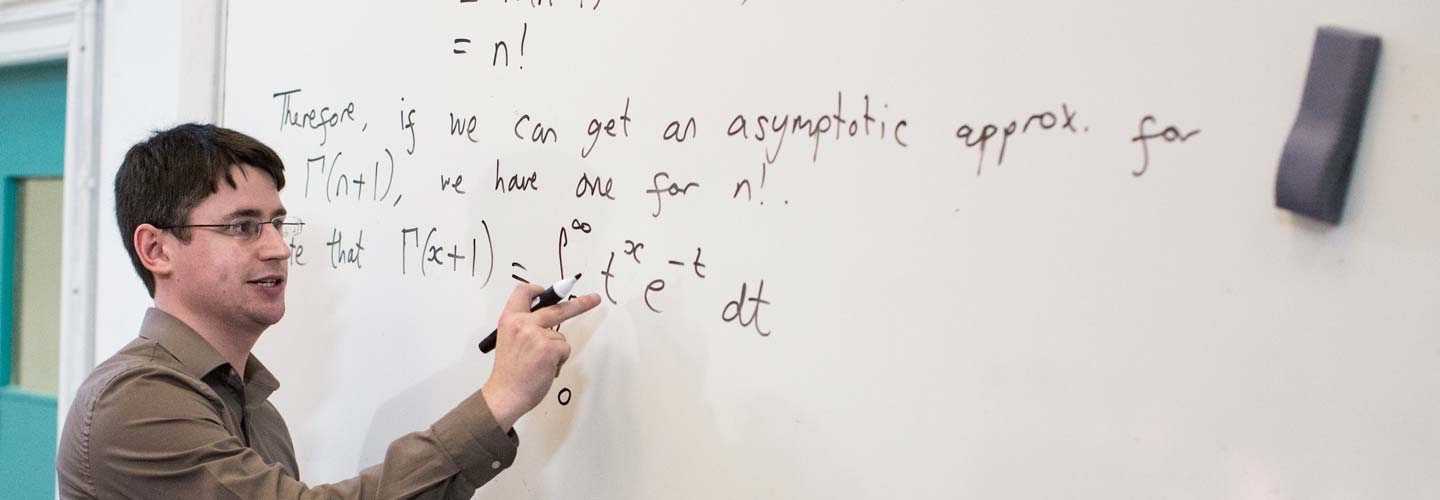 = n!
Therefore, if we can get an asymptotic approx. for
Γ(n+1), we have one for n!.
that Γ(x+1) = ∫₀^∞ t^x e^{-t} dt